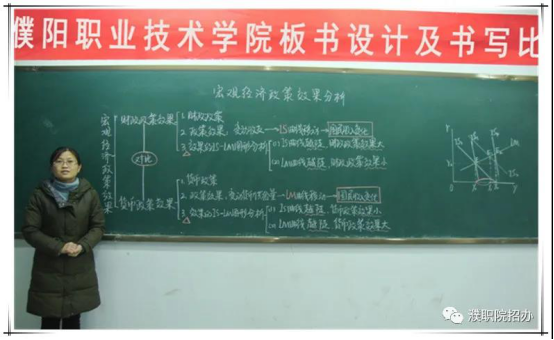 濮阳职业技术学院板书设计及书写比
宏观经济政策效果分析
宏观经济政策效果
财政政策效果
1. 财政政策
2. 政策效果
IS曲线移动
国民收入变化
3. 效果的IS-LM图形分析
(1) IS曲线越陡, 财政政策效果大
(2) LM曲线越陡, 财政政策效果小
对比
货币政策效果
1. 货币政策
2. 政策效果
LM曲线移动
国民收入变化
3. 效果的IS-LM图形分析
(1) IS曲线越陡, 货币政策效果小
(2) LM曲线越陡, 货币政策效果大
濮职院招办